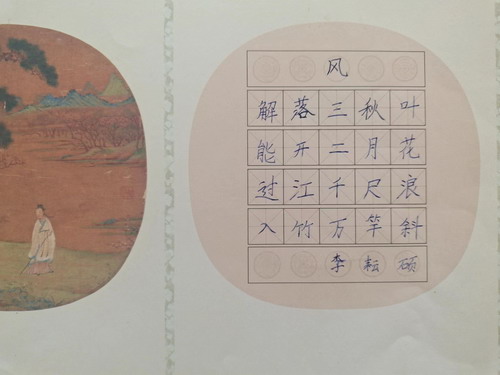 风
解落三秋叶
能开二月花
过江千尺浪
入竹万竿斜
李耘硕